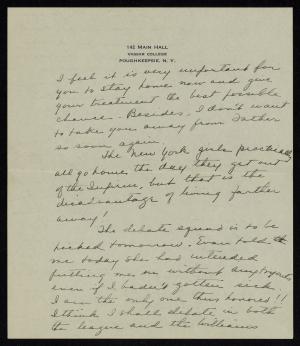 142 MAIN HALL
VASSAR COLLEGE
POUGHKEEPSIE, N. Y.
I feel it is very important for
you to stay home now and give
your treatment the best possible
chance. Besides, I don't want
to take you away from Father
so soon again.
The New York girls practically
all go home, the day they get out
of the Infirm, but that is the
disadvantage of living farther
away!
The debate squad is to be
picked tomorrow. Evan told
me today she had intended
putting me on without any tryouts
even if I hadn't gotten sick.
I am the only one thus honored!!
I think I shall debate in both
the league and the Williams